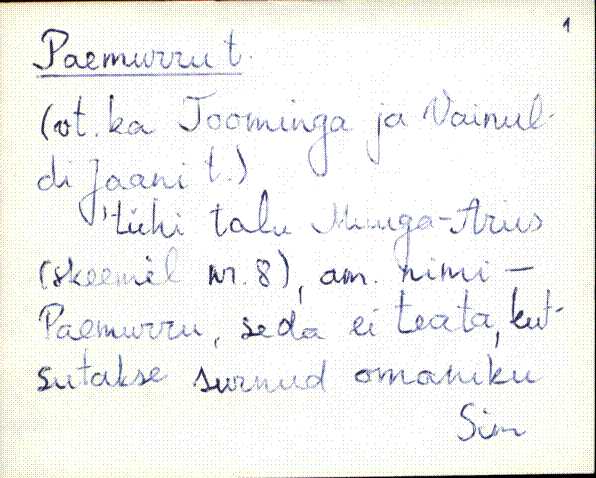 1
Paemurru t.
(vt. ka Toominga ja Vainul-
di Jaani t.)
'tühi talu Muuga-Arius
(skeemil nr. 8), am. nimi —
Paemurru, seda ei teata, kut-
sutakse surnud omaniku
Sim